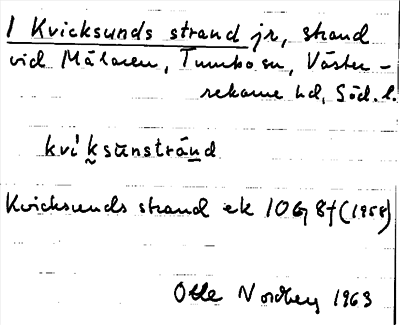 1 Kvicksunds strand jr, strand
vid Mälaren, Tumbo sn, Väster-
rekarne hd, Söd. l.
kvi`ksùnstránd
Kvicksunds strand ek 10G 8f (1958)
Olle Nordberg 1963